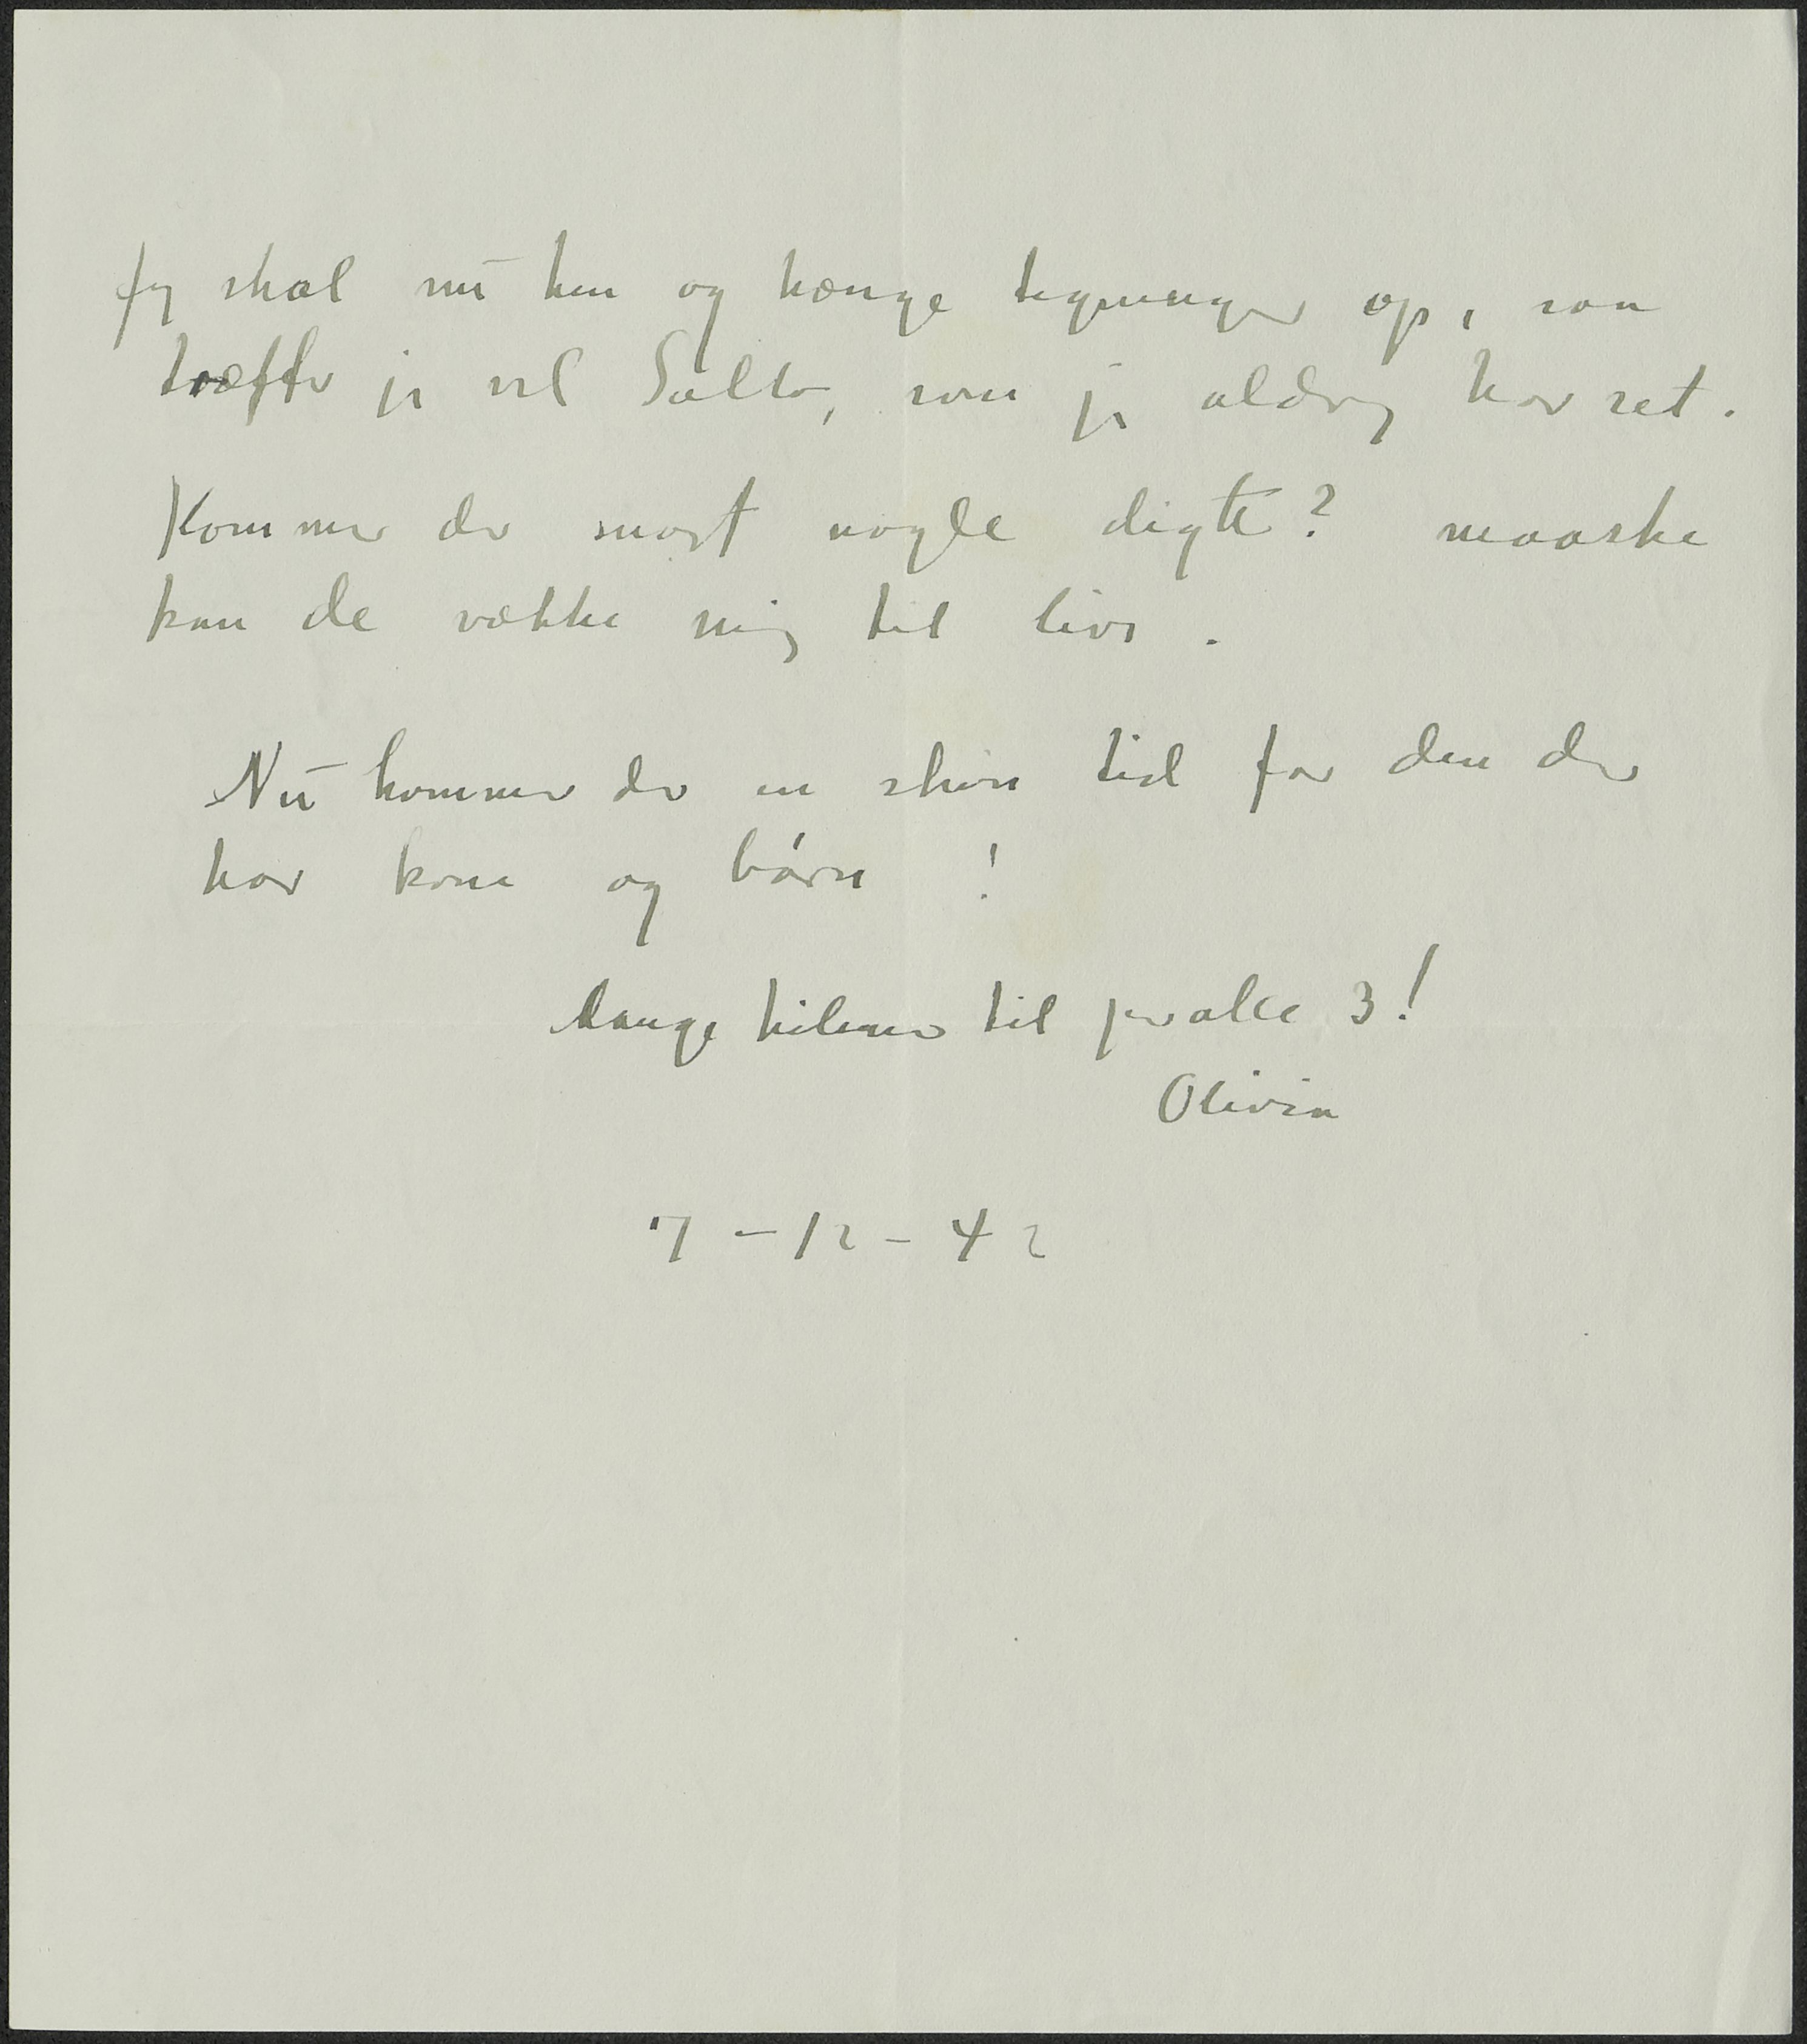 Jeg skal nu hen og hænge tegninger op, saa
træffer jeg vel Salto, som jeg aldrig har set.
Kommer der snart nogle digte? maaske
kan de vække mig til livs.
Nu kommer der en skøn tid for den der
har kone og børn!
Mange hilsner til jer alle 3!
Olivia
7-12-42